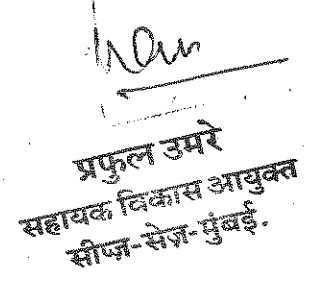 प्रफुल उमरे
सहायक विकास आयुक्त
सीप्ज़-सेज़-मुंबई.